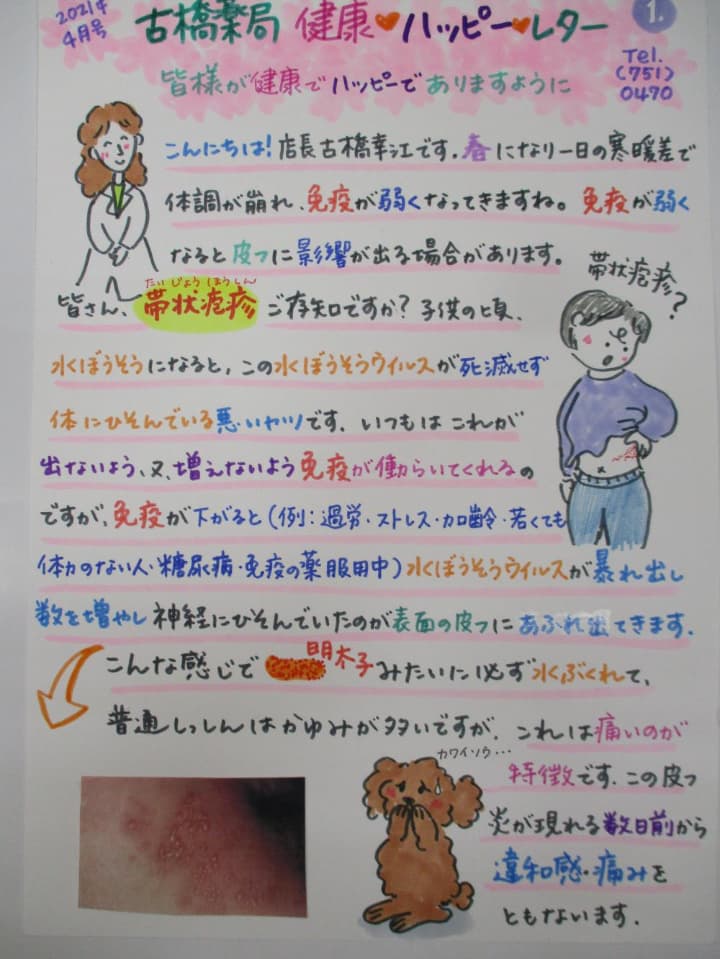 2021年
4月号
古橋薬局 健康♥ハッピー♥レター
1.
皆様が健康でハッピーでありますように
Tel.
(751)
0470
こんにちは!店長古橋幸江です。春になり一日の寒暖差で
体調が崩れ、免疫が弱くなってきますね。免疫が弱く
なると皮フに影響が出る場合があります。
帯状疱疹?
たいじょうほうしん
皆さん、帯状疱疹ご存知ですか?子供の頃、
水ぼうそうになると、この水ぼうそうウイルスが死滅せず
体にひそんでいる悪いヤツです。いつもはこれが
出ないよう、又、増えないよう免疫が働らいてくれるの
ですが、免疫が下がると(例:過労・ストレス・加齢・若くても
体力のない人・糖尿病・免疫の薬服用中)水ぼうそうウイルスが暴れ出し
数を増やし神経にひそんでいたのが表面の皮フにあふれ出てきます。
こんな感じで明太子みたいに必ず水ぶくれて、
普通しっしんはかゆみが多いですが、これは痛いのが
カワイソウ・・・
特徴です。この皮フ
炎が現れる数日前から
違和感・痛みを
ともないます。